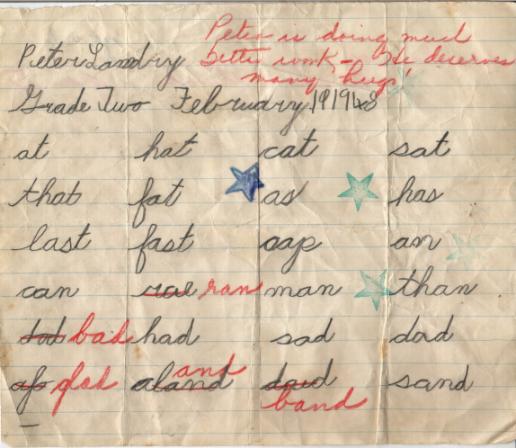 Peter is doing much
Peter Landry better work - He deserves
many hugs!
Grade Two February 19 1948
at hat cat sat
that fat as has
last fast aap an
can ran man than
bad had sad dad
glad aland and sand
band